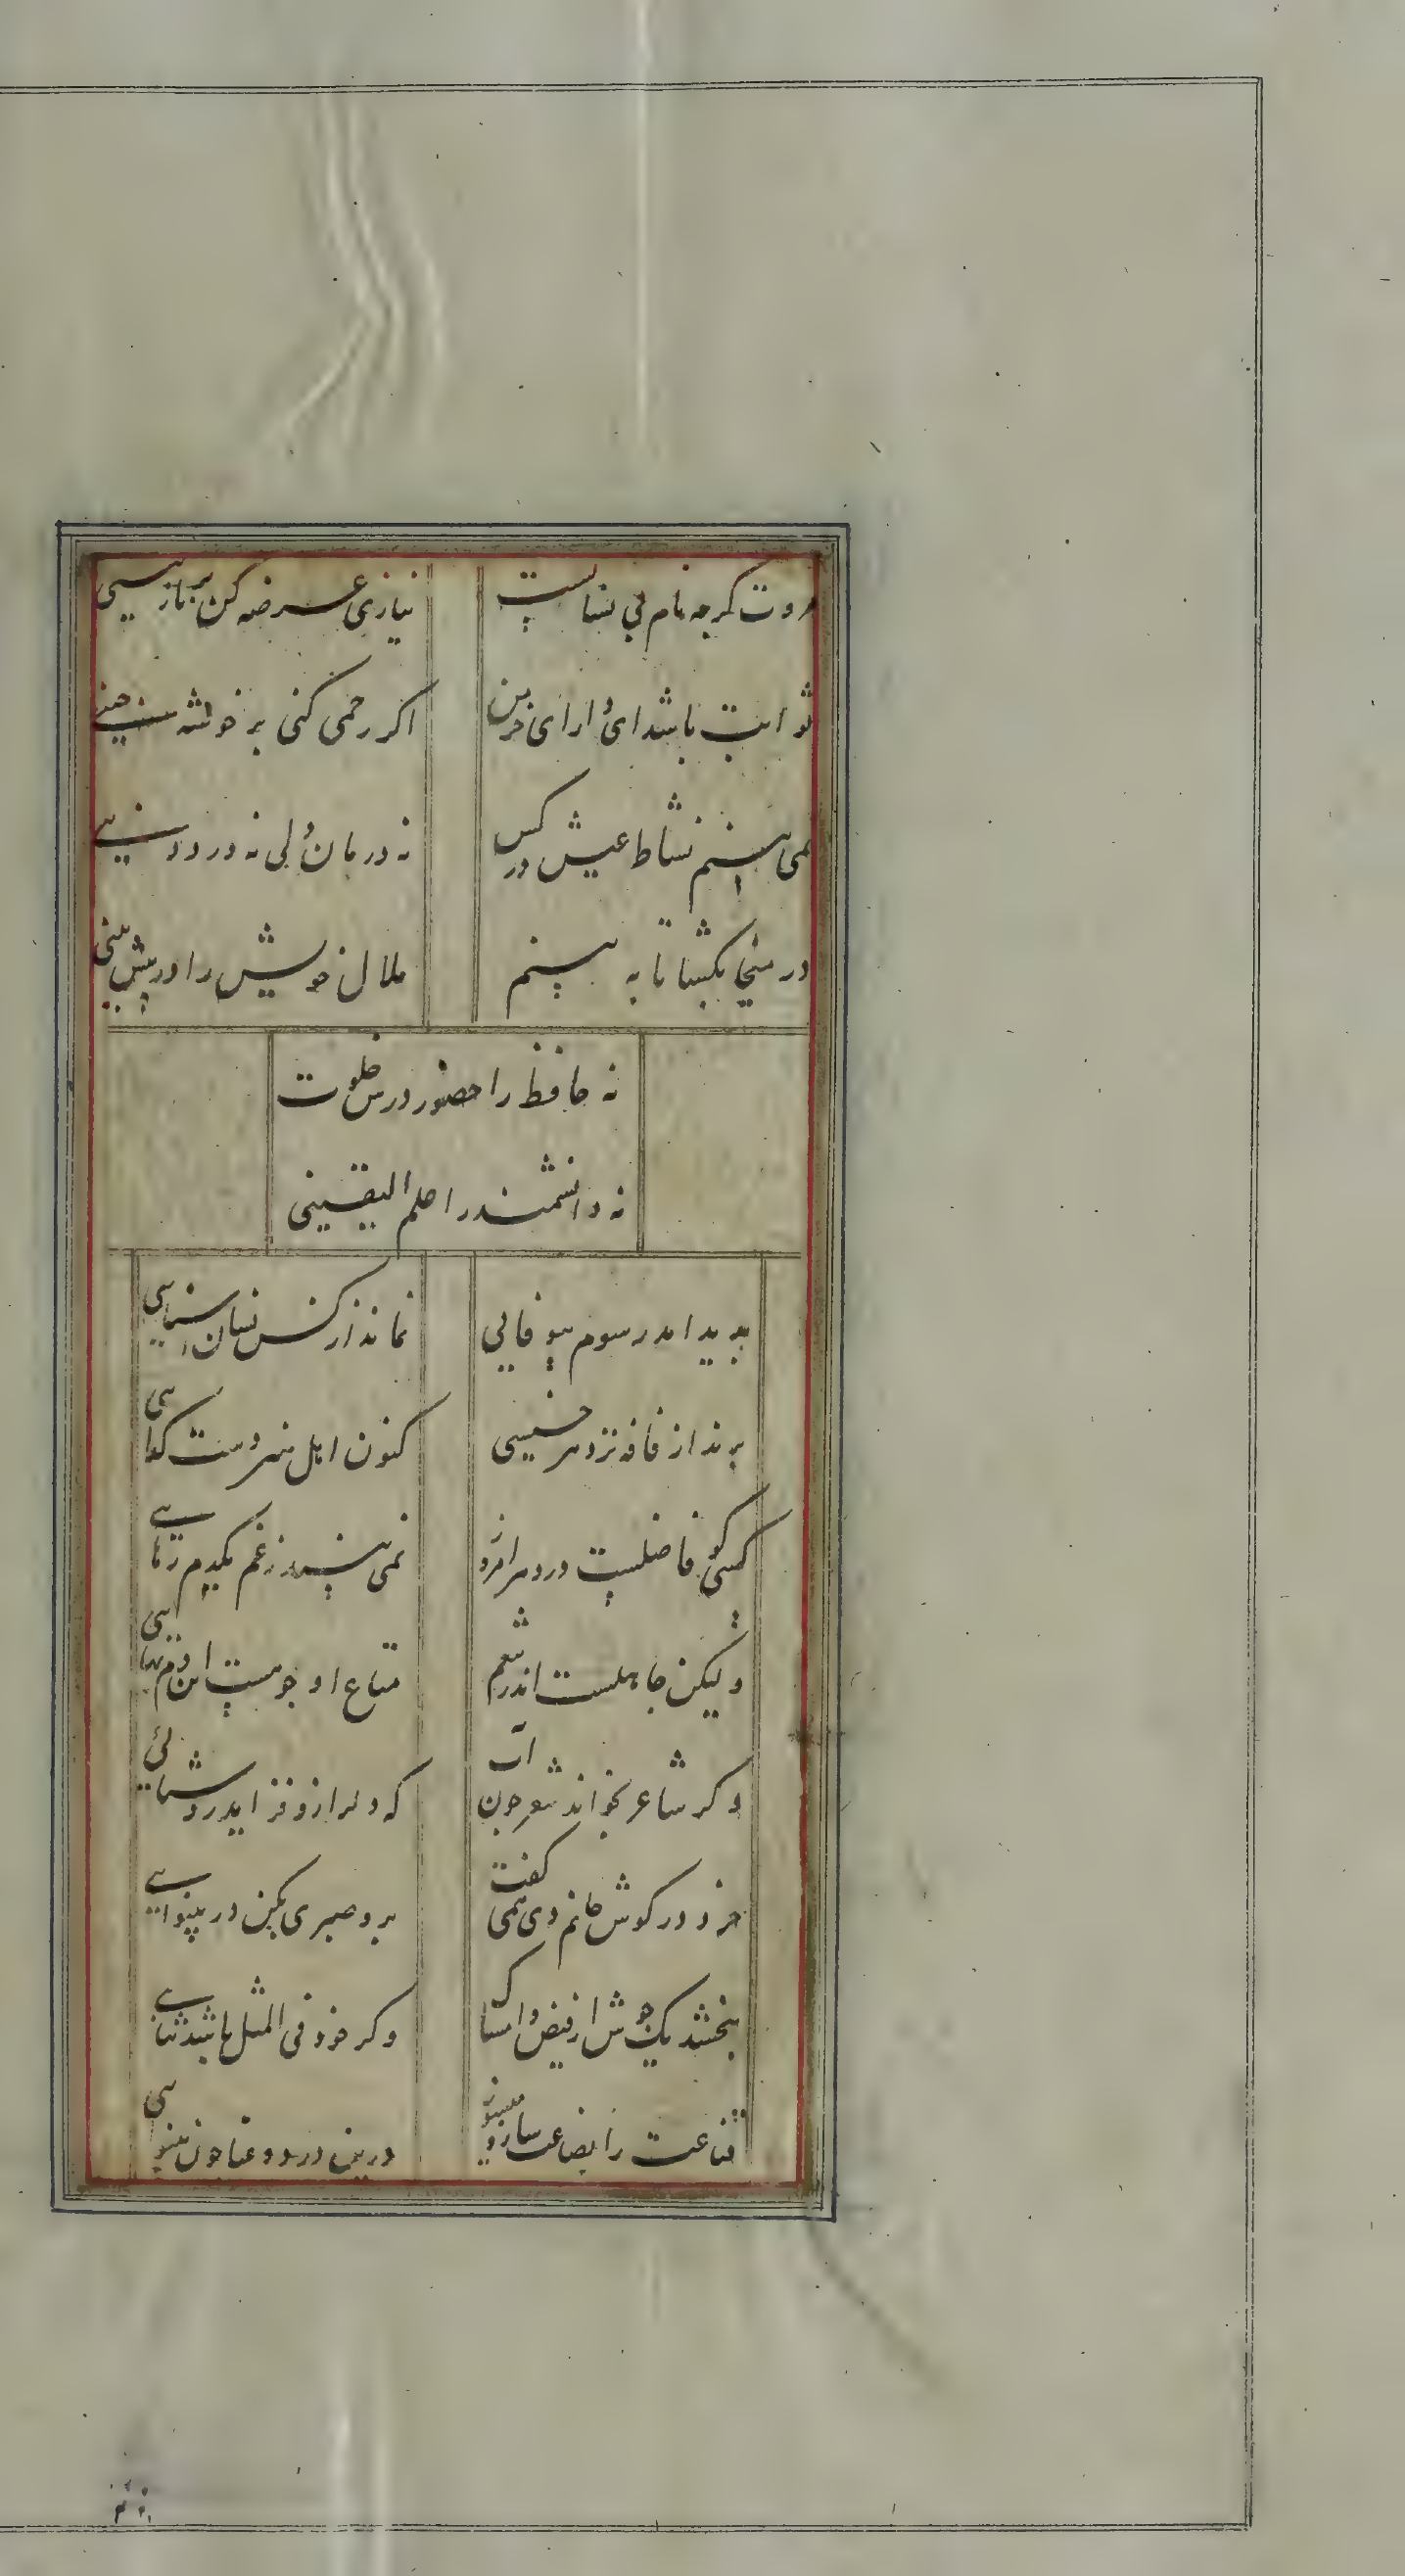 مروت گرچه نام بی نشانیست
نیازی عرضه کن بر نازنینی
ثوابت باشد ای دارای خرمن
اگر رحمی کنی بر خوشه چینی
نمی بینم نشاط عیش در کس
نه درمان دلی نه درد دینی
در میخانه بگشا تا به بینم
ملال خویش را در پیش بینی
نه حافظ را حضور درس خلوت
نه دانشمند را علم الیقینی
پدید آمد رسوم بیوفایی
نماند از کس نشان آشنایی
برند از فاقه نزد هر خسیسی
کنون اهل هنر دست گدایی
کسی کو فاضلست در دهر امروز
نمی بیند ز غم یکدم رهایی
ولیکن جاهلست اندر تنعم
متاع او چو هست این دم بهایی
وگر شاعر بخواند شعر چون آب
که دل را زو فزاید روشنایی
خرد در گوش جانم دی همی گفت
برو صبری بکن در بینوایی
نبخشد یک جوش از فیض و امساک
وگر خود فی المثل باشد ثنایی
قناعت را بضاعت ساز و میسوز
درین درد و عنا چون بینوایی